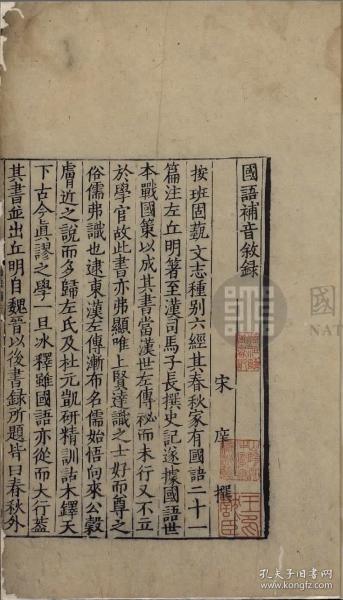 國語補音敘錄
宋庠撰
按班固蓺文志種别六經其春秋家有國語二十一
篇注左丘明著至漢司馬子長撰史記遂據國語世
本戰國策以成其書當漢世左傳祕而未行又不立
於學官故此書亦弗顯唯上賢達識之士好而尊之
俗儒弗識也逮東漢左傳漸布名儒始悟向來公穀
膚近之說而多歸左氏及杜元凱研精訓詁木鐸天
下古今眞謬之學一旦冰釋雖國語亦從而大行蓋
其書並出丘明自魏晉以後書録所題皆曰春秋外
國
NAT
孔夫子旧书网